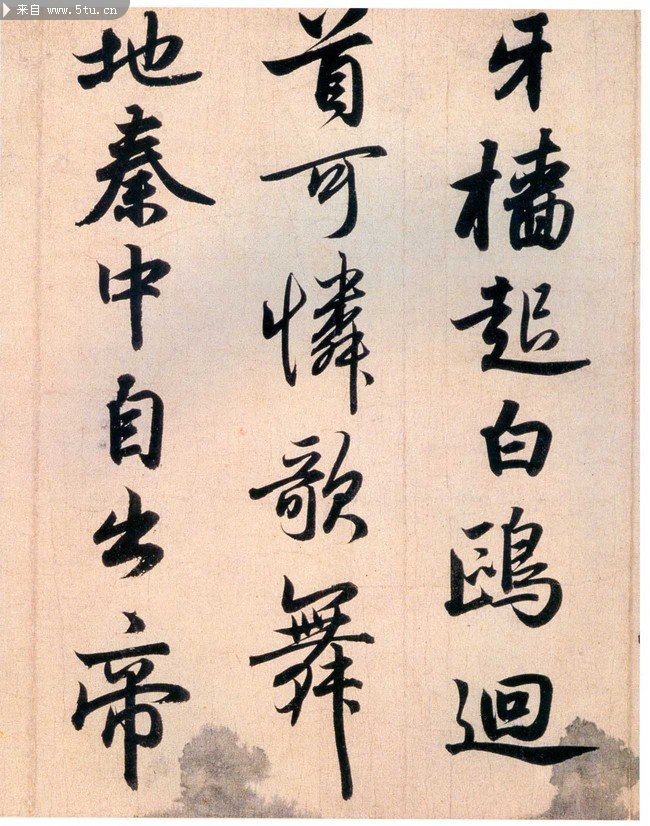 来自 www.5tu.cn
牙檣起白鷗迴
首可憐歌舞
地秦中自出帝